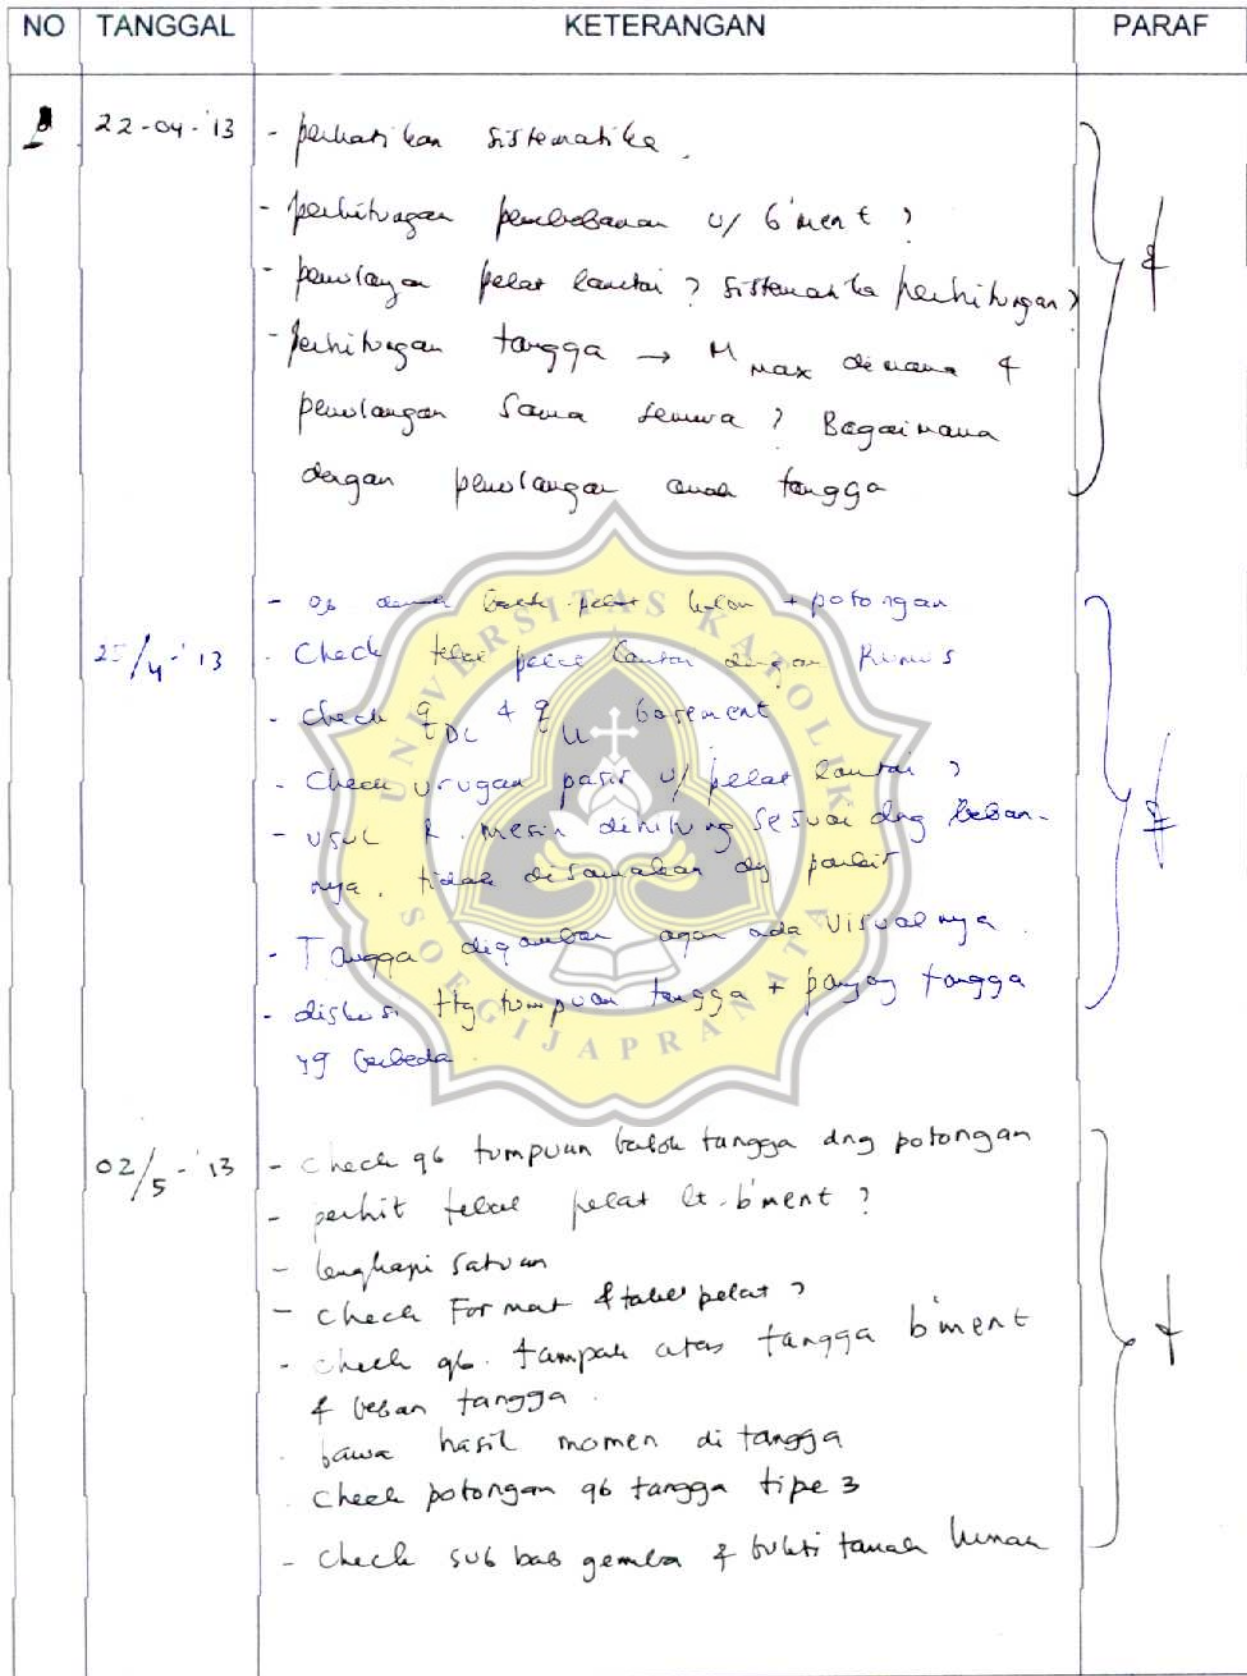 NO TANGGAL KETERANGAN PARAF
22-04-'13 - perhatikan sistematika.
- perhitungan pembebanan u/ b'ment ?
- penulangan pelat lantai ? sistematika perhitungan ?
- perhitungan tangga → M max dimana &
penulangan sama semua ? Bagaimana
dengan penulangan anak tangga
- gb denah balok pelat kolom + potongan
25/4-'13 - Check tebal pelat lantai dengan Rumus
- check qDL & qLL basement
- Check urugan pasir u/ pelat lantai ?
- usul R. mesin dihitung sesuai dng beban-
nya. tidak disamakan dg parkir
- Tangga digambar agar ada visualnya.
- diskusi ttg tumpuan tangga + panjang tangga
yg berbeda.
02/5-'13 - check gb tumpuan balok tangga dng potongan
- perhit tebal pelat lt. b'ment ?
- lengkapi satuan
- check Format & tabel pelat ?
- check gb. tampak atas tangga b'ment
& beban tangga.
- bawa hasil momen di tangga
- check potongan gb tangga tipe 3
- check sub bab gempa & bukti tanah lunak
UNIVERSITAS KATOLIK
SOEGIJAPRANATA